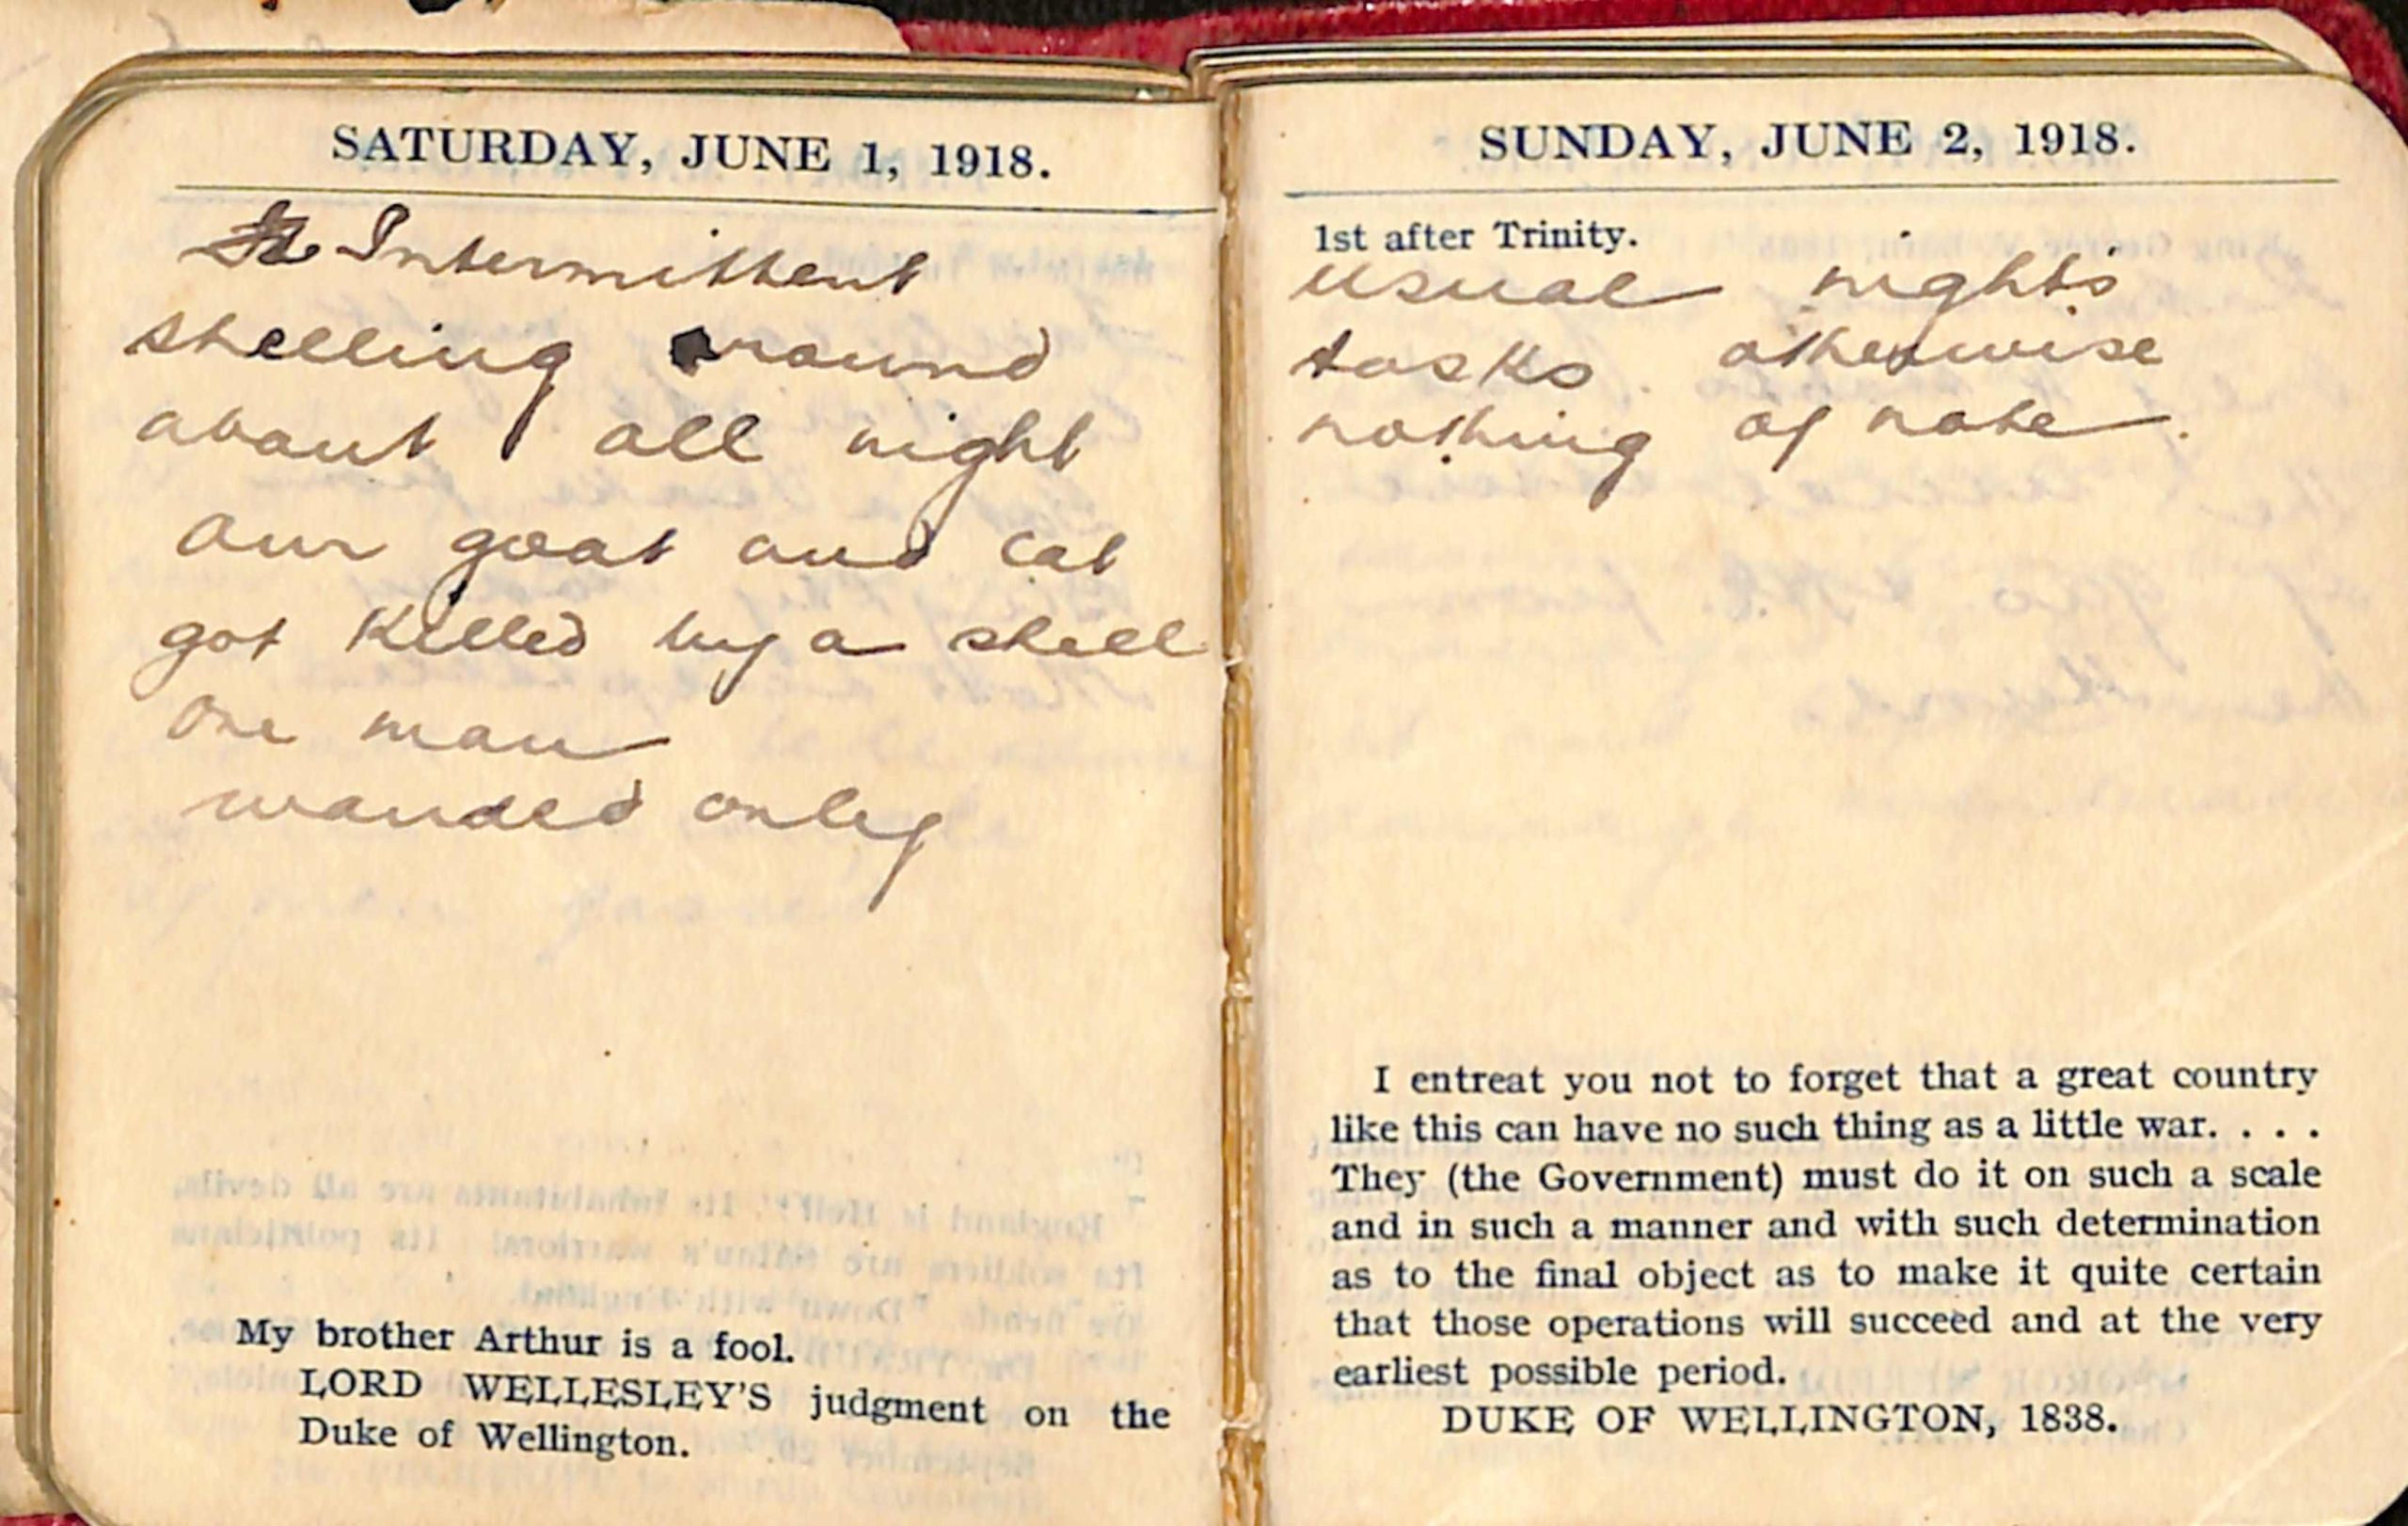 SATURDAY, JUNE 1, 1918.
Intermittent
shelling around
about all night
our goat and cat
got killed by a shell
one man
wounded only
My brother Arthur is a fool.
LORD WELLESLEY'S judgment on the
Duke of Wellington.
SUNDAY, JUNE 2, 1918.
1st after Trinity.
usual nights
tasks otherwise
nothing of note.
I entreat you not to forget that a great country
like this can have no such thing as a little war. . . .
They (the Government) must do it on such a scale
and in such a manner and with such determination
as to the final object as to make it quite certain
that those operations will succeed and at the very
earliest possible period.
DUKE OF WELLINGTON, 1838.